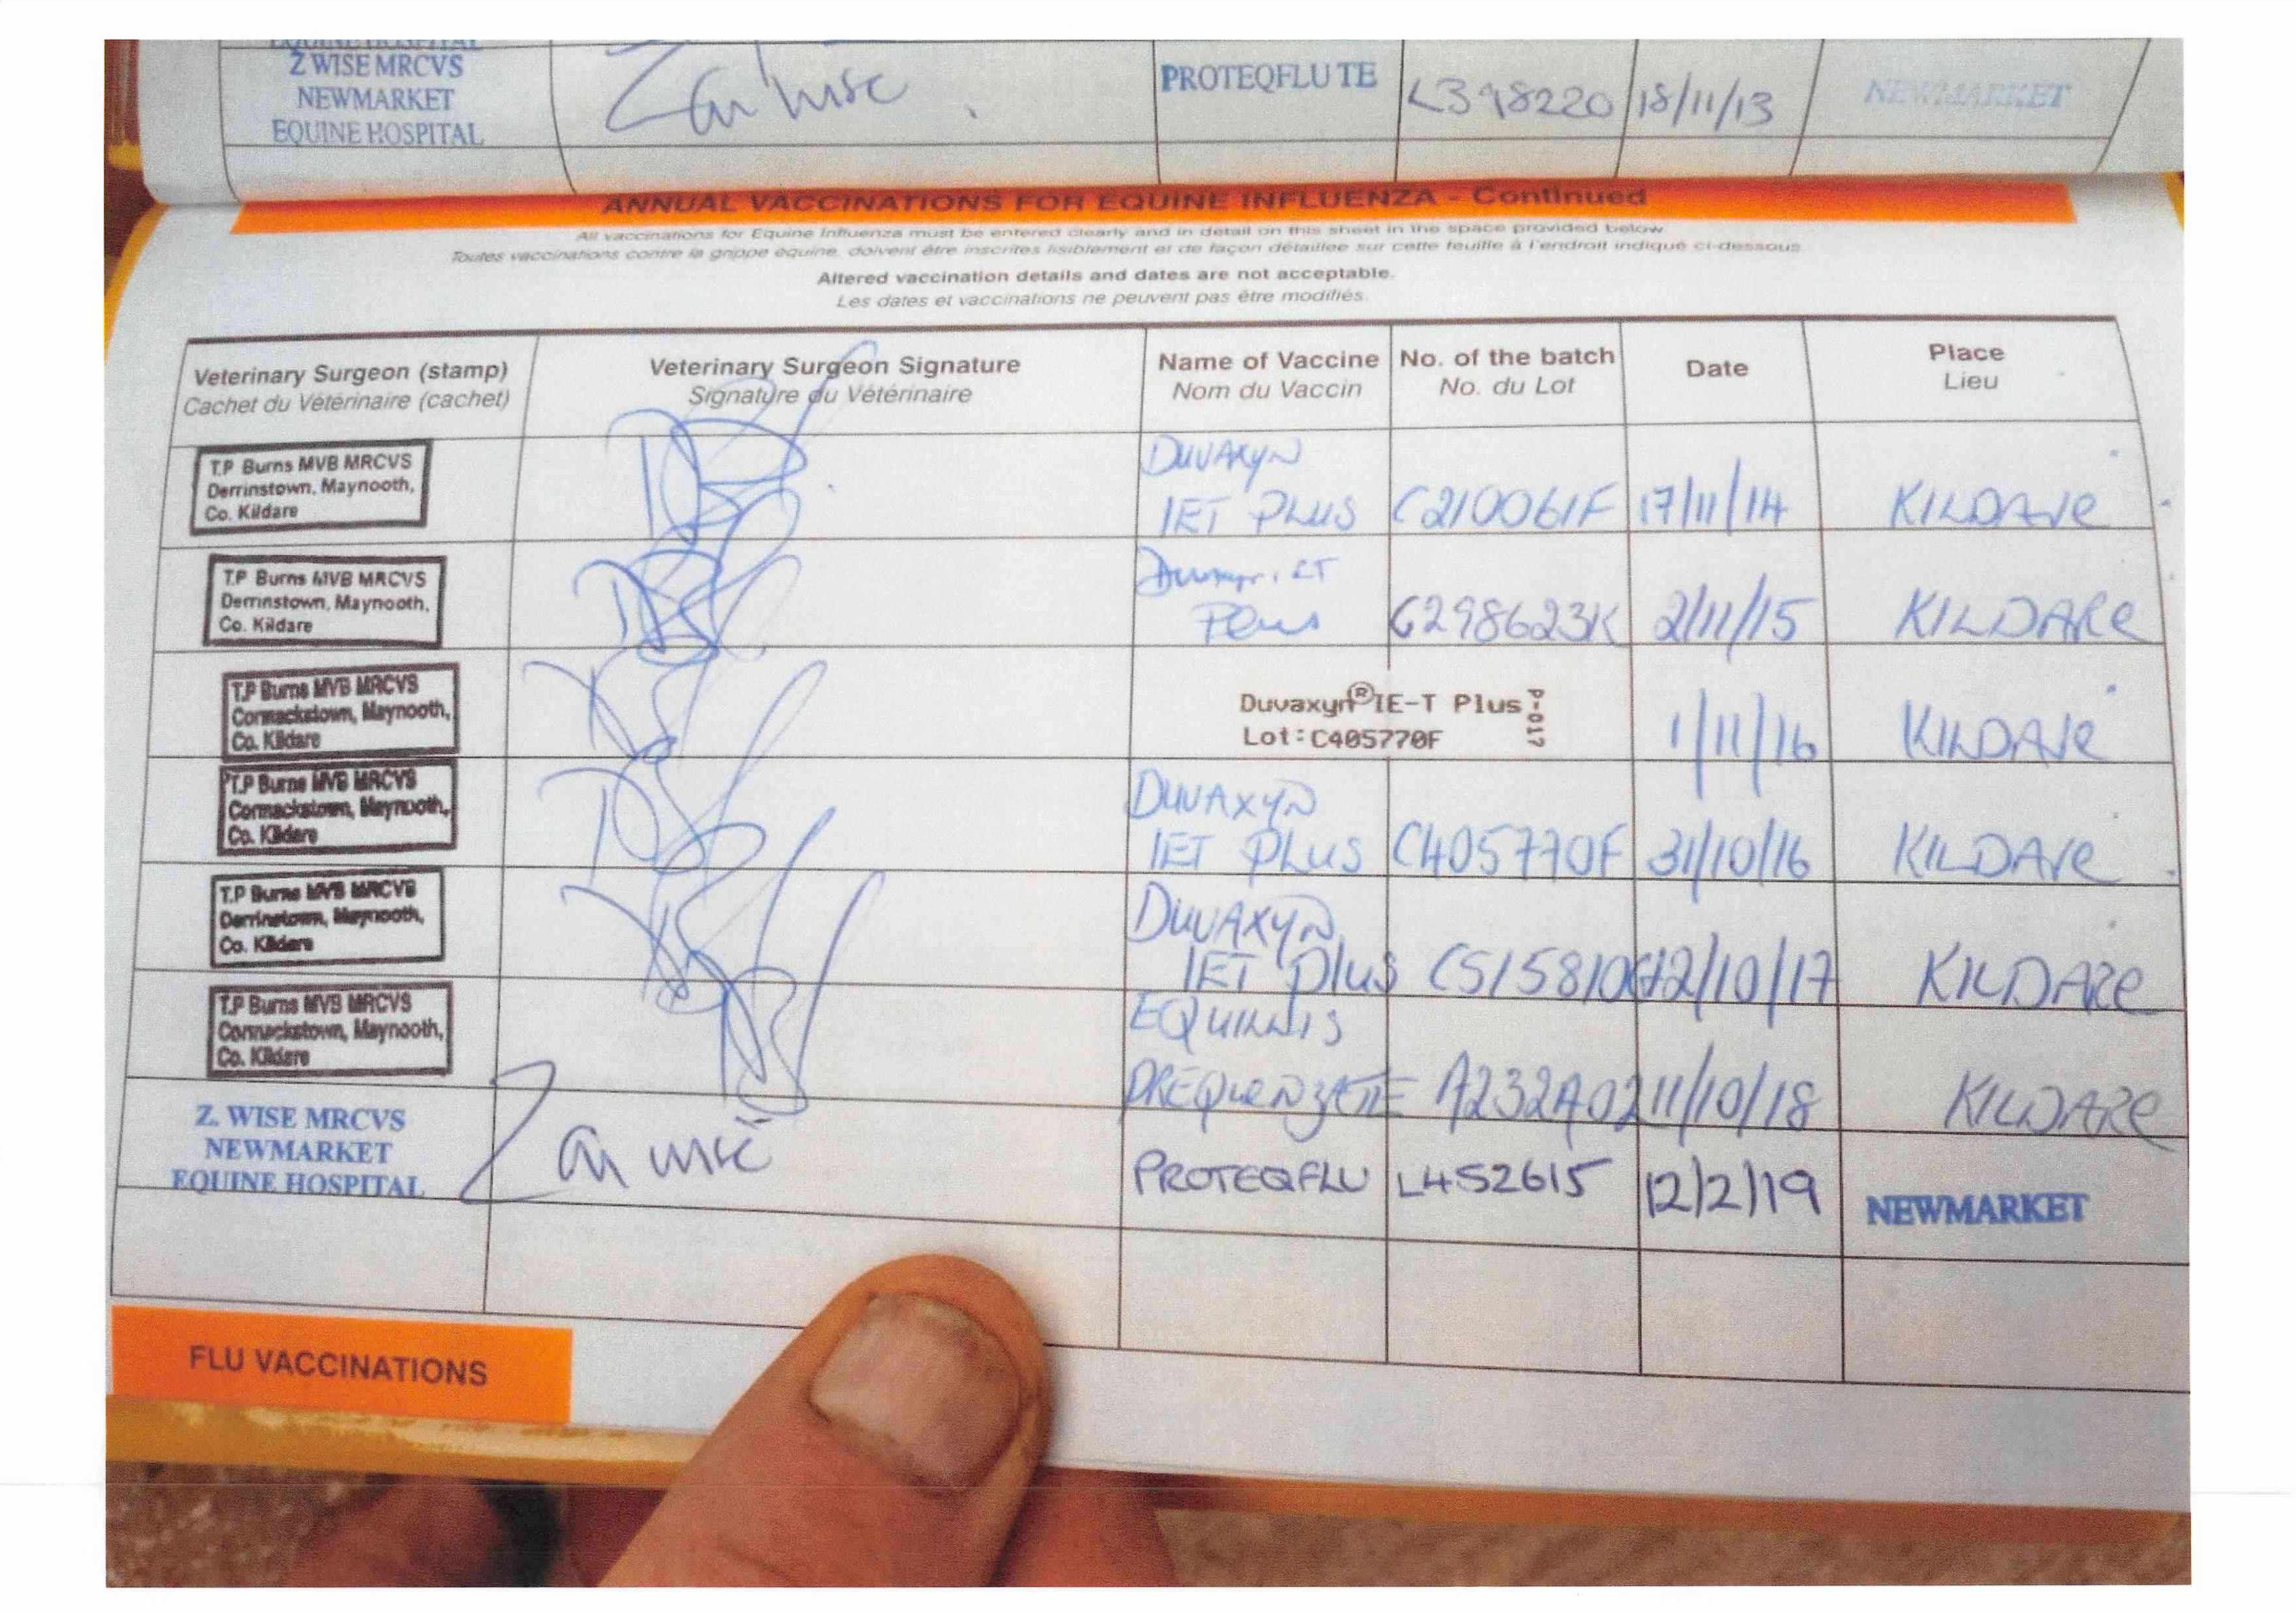 Z WISE MRCVS
NEWMARKET
EQUINE HOSPITAL
Zan Wise
PROTEQFLU TE
L398220
18/11/13
NEWMARKET
ANNUAL VACCINATIONS FOR EQUINE INFLUENZA - Continued
All vaccinations for Equine Influenza must be entered clearly and in detail on this sheet in the space provided below
Toutes vaccinations contre la grippe équine, doivent être inscrites lisiblement et de façon détaillée sur cette feuille à l'endroit indiqué ci-dessous
Altered vaccination details and dates are not acceptable.
Les dates et vaccinations ne peuvent pas être modifiés.
Veterinary Surgeon (stamp)
Cachet du Vétérinaire (cachet)
Veterinary Surgeon Signature
Signature du Vétérinaire
Name of Vaccine
Nom du Vaccin
No. of the batch
No. du Lot
Date
Place
Lieu
T.P Burns MVB MRCVS
Derrinstown, Maynooth,
Co. Kildare
DUVAXYN
IET PLUS
C210061F
17/11/14
KILDARE
T.P Burns MVB MRCVS
Derrinstown, Maynooth,
Co. Kildare
Plus
C298623K
2/11/15
KILDARE
T.P Burns MVB MRCVS
Cormackstown, Maynooth,
Co. Kildare
Duvaxyn® IE-T Plus
Lot:C405770F
P-017
1/11/16
KILDARE
T.P Burns MVB MRCVS
Cormackstown, Maynooth,
Co. Kildare
DUVAXYN
IET PLUS
C405770F
31/10/16
KILDARE
T.P Burns MVB MRCVS
Derrinstown, Maynooth,
Co. Kildare
DUVAXYN
IET Plus
12/10/17
KILDARE
T.P Burns MVB MRCVS
Cormackstown, Maynooth,
Co. Kildare
EQUILIS
PREQUENZATE
A232A02
11/10/18
KILDARE
Z. WISE MRCVS
NEWMARKET
EQUINE HOSPITAL
Zan Wise
PROTEQFLU
L452615
12/2/19
NEWMARKET
FLU VACCINATIONS